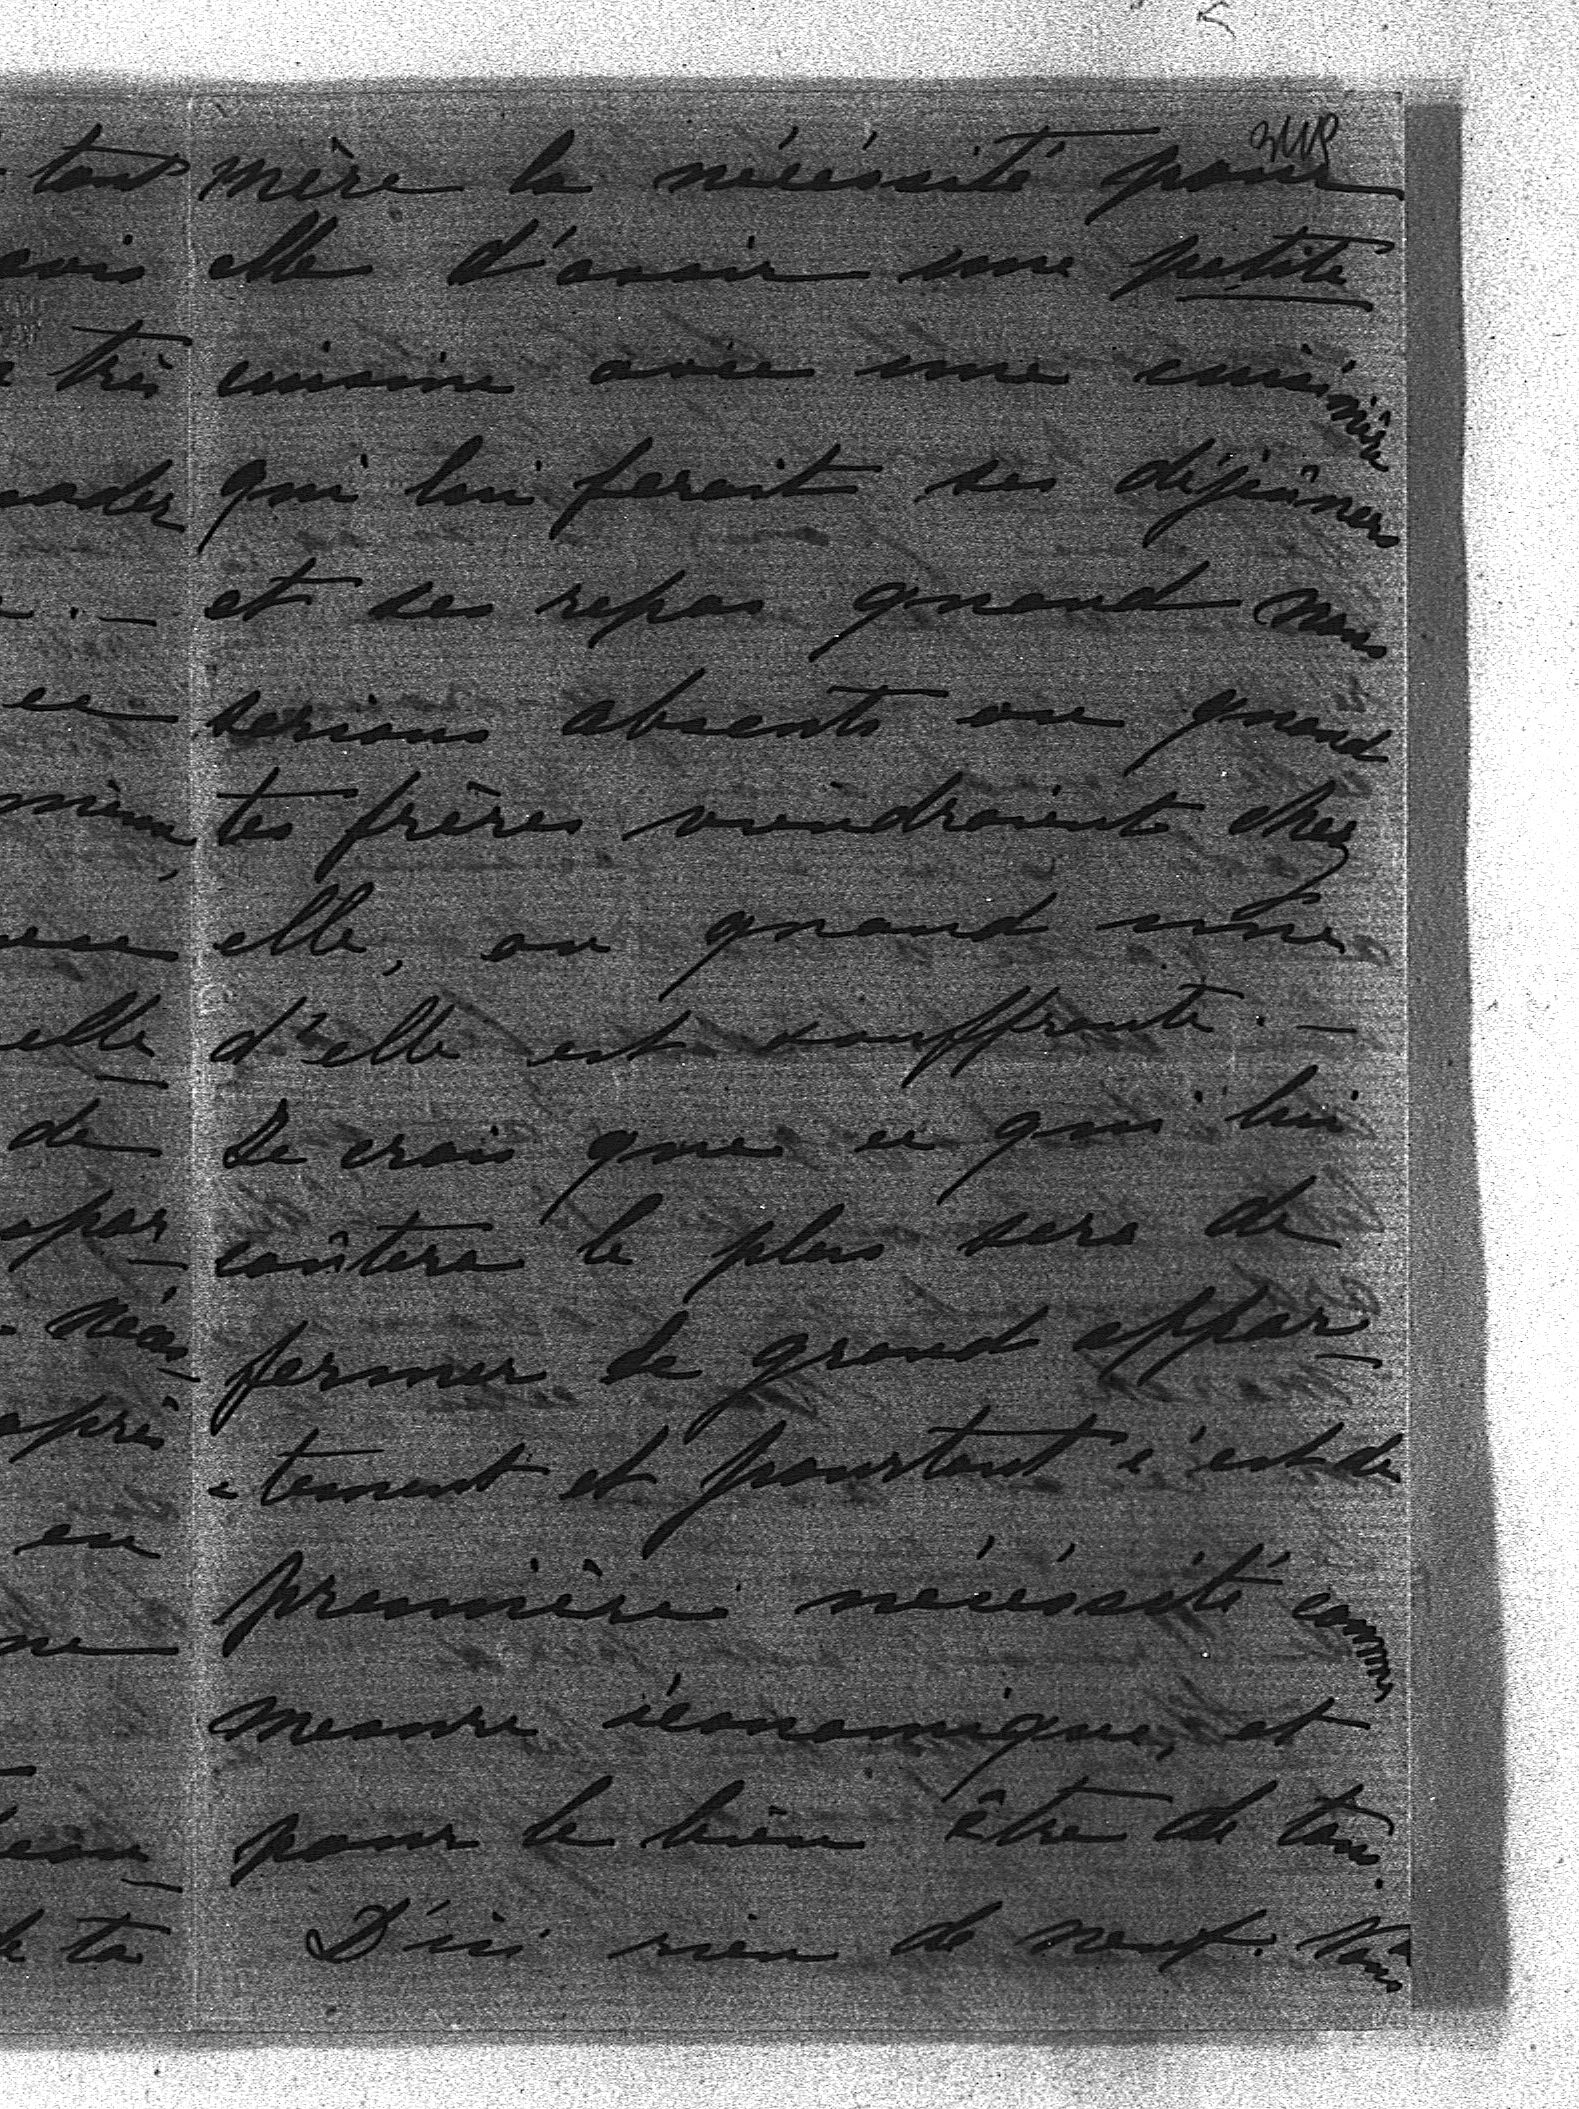 mère la nécéssité pour
elle d'avoir une petite
cuisine avec une cuisinière
qui lui ferait ses déjeûners
et ses repas quand nous
serions absents ou quand
tes frères viendraient chez
elle, ou quand une
d'elle est souffrante. —
Je crois que ce qui lui
coûtera le plus sera de
fermer le grand appar-
-tement et pourtant c'est de
première nécéssité comme
mesure économique, et
pour le bien être de tous.
D'ici rien de neuf. Nous
tout
très
ce
même
elle
de
après
en
de ta